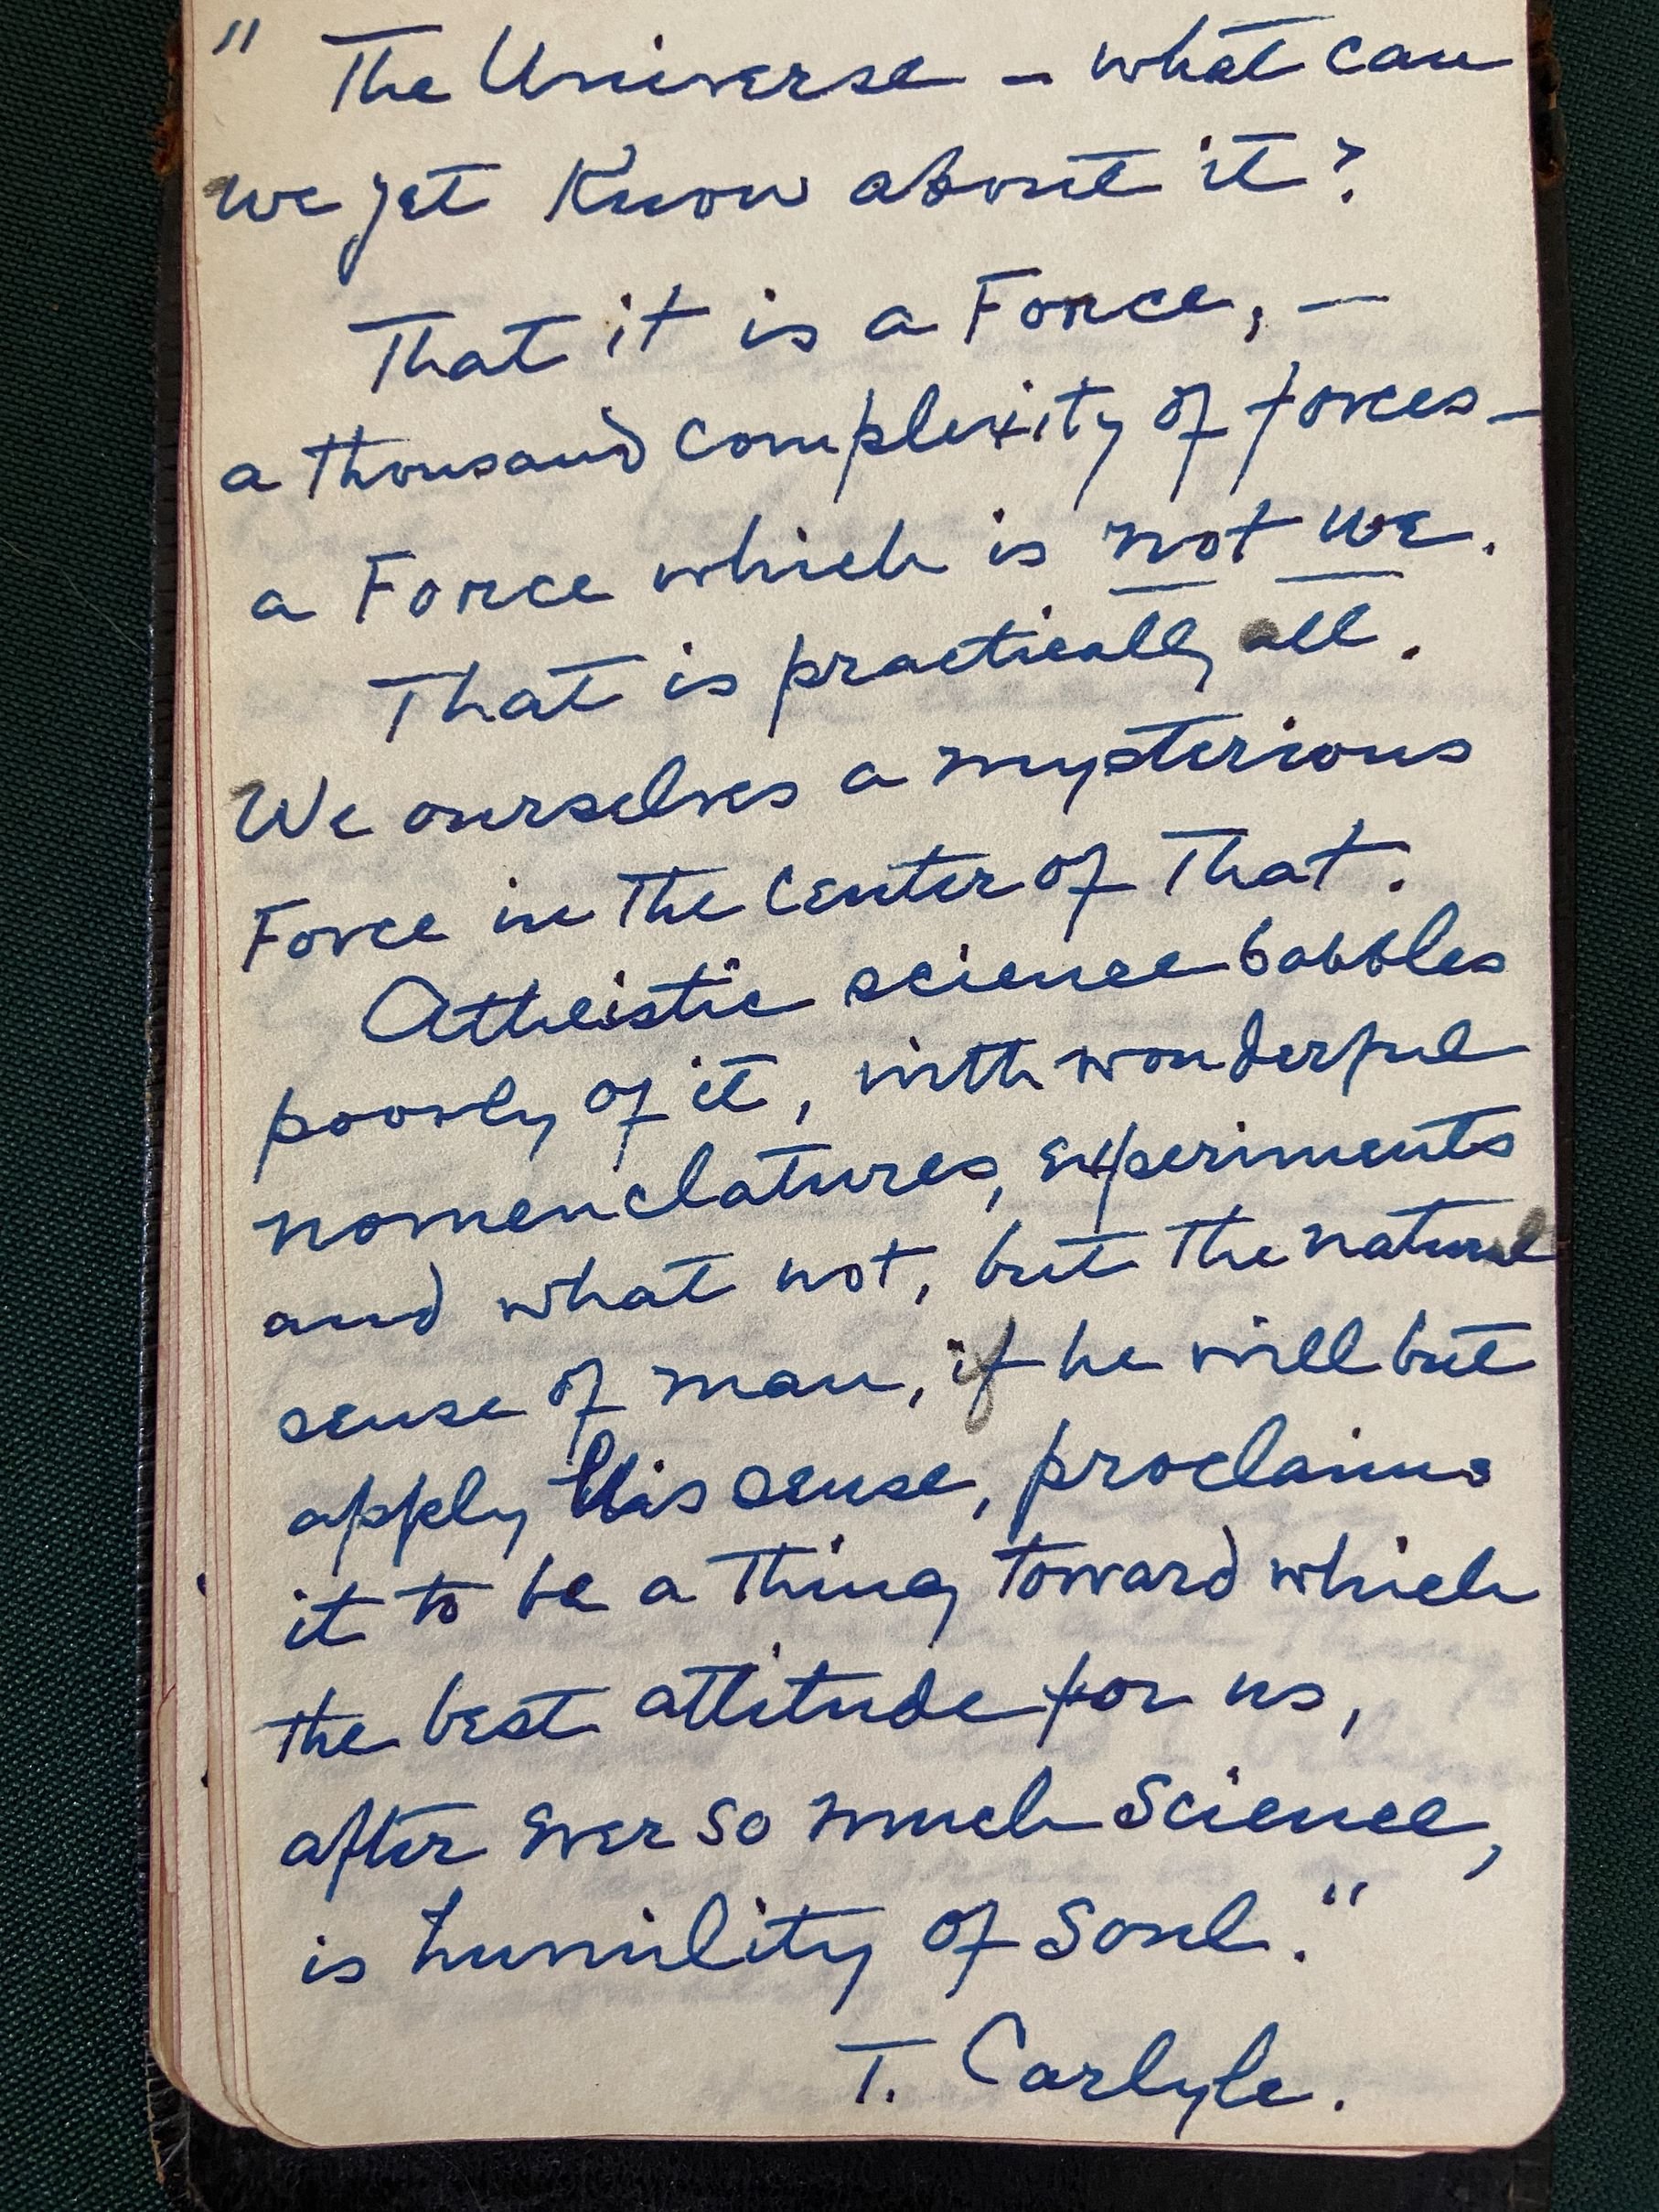 " The Universe – what can
we yet Know about it?
That it is a Force, –
a thousand complexity of forces –
a Force which is not we.
That is practically all.
We ourselves a mysterious
Force in the center of That.
Atheistic science babbles
poorly of it, with wonderful
nomenclatures, experiments
and what not, but the natural
sense of man, if he will but
apply his sense, proclaims
it to be a Thing toward which
the best attitude for us,
after ever so much Science,
is humility of Soul."
T. Carlyle.